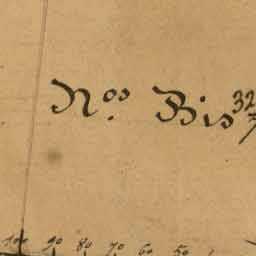 Nos Bis 32
100 90 80 70 60 50